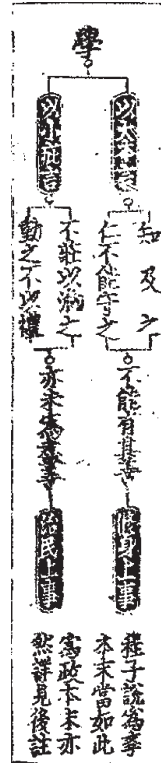 學
以大本言
知及之
仁不能守之
不能有其善
修身上事
以小疵言
不莊以涖之
動之不以禮
亦未為盡善
治民上事
程子說為學
本末當如此
為政本末亦
然詳見後註